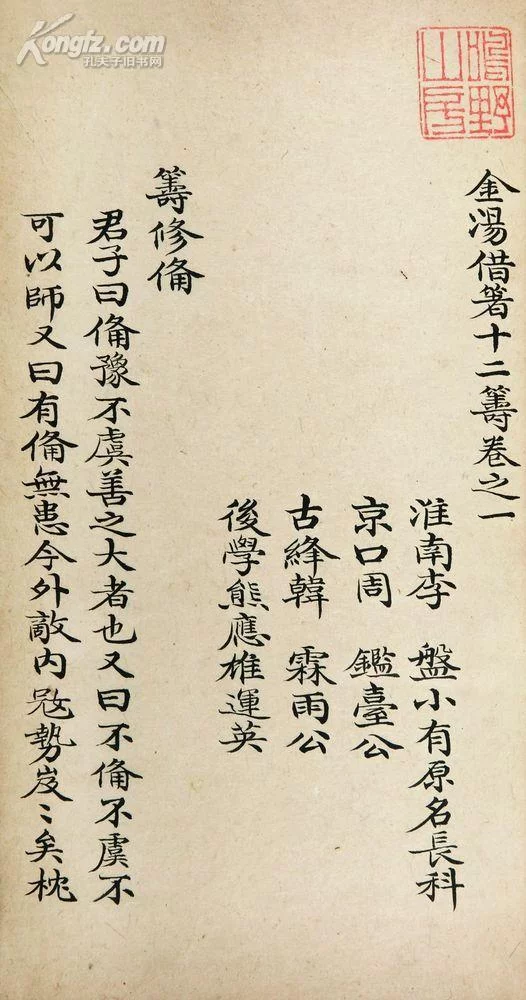 Kongfz.com
孔夫子旧书网
鳴野
山房
金湯借箸十二籌卷之一
淮南李　盤小有原名長科
京口周　鑑臺公
古絳韓　霖雨公
後學熊應雄運英
籌修備
君子曰備豫不虞善之大者也又曰不備不虞不
可以師又曰有備無患今外敵内寇勢岌〻矣枕